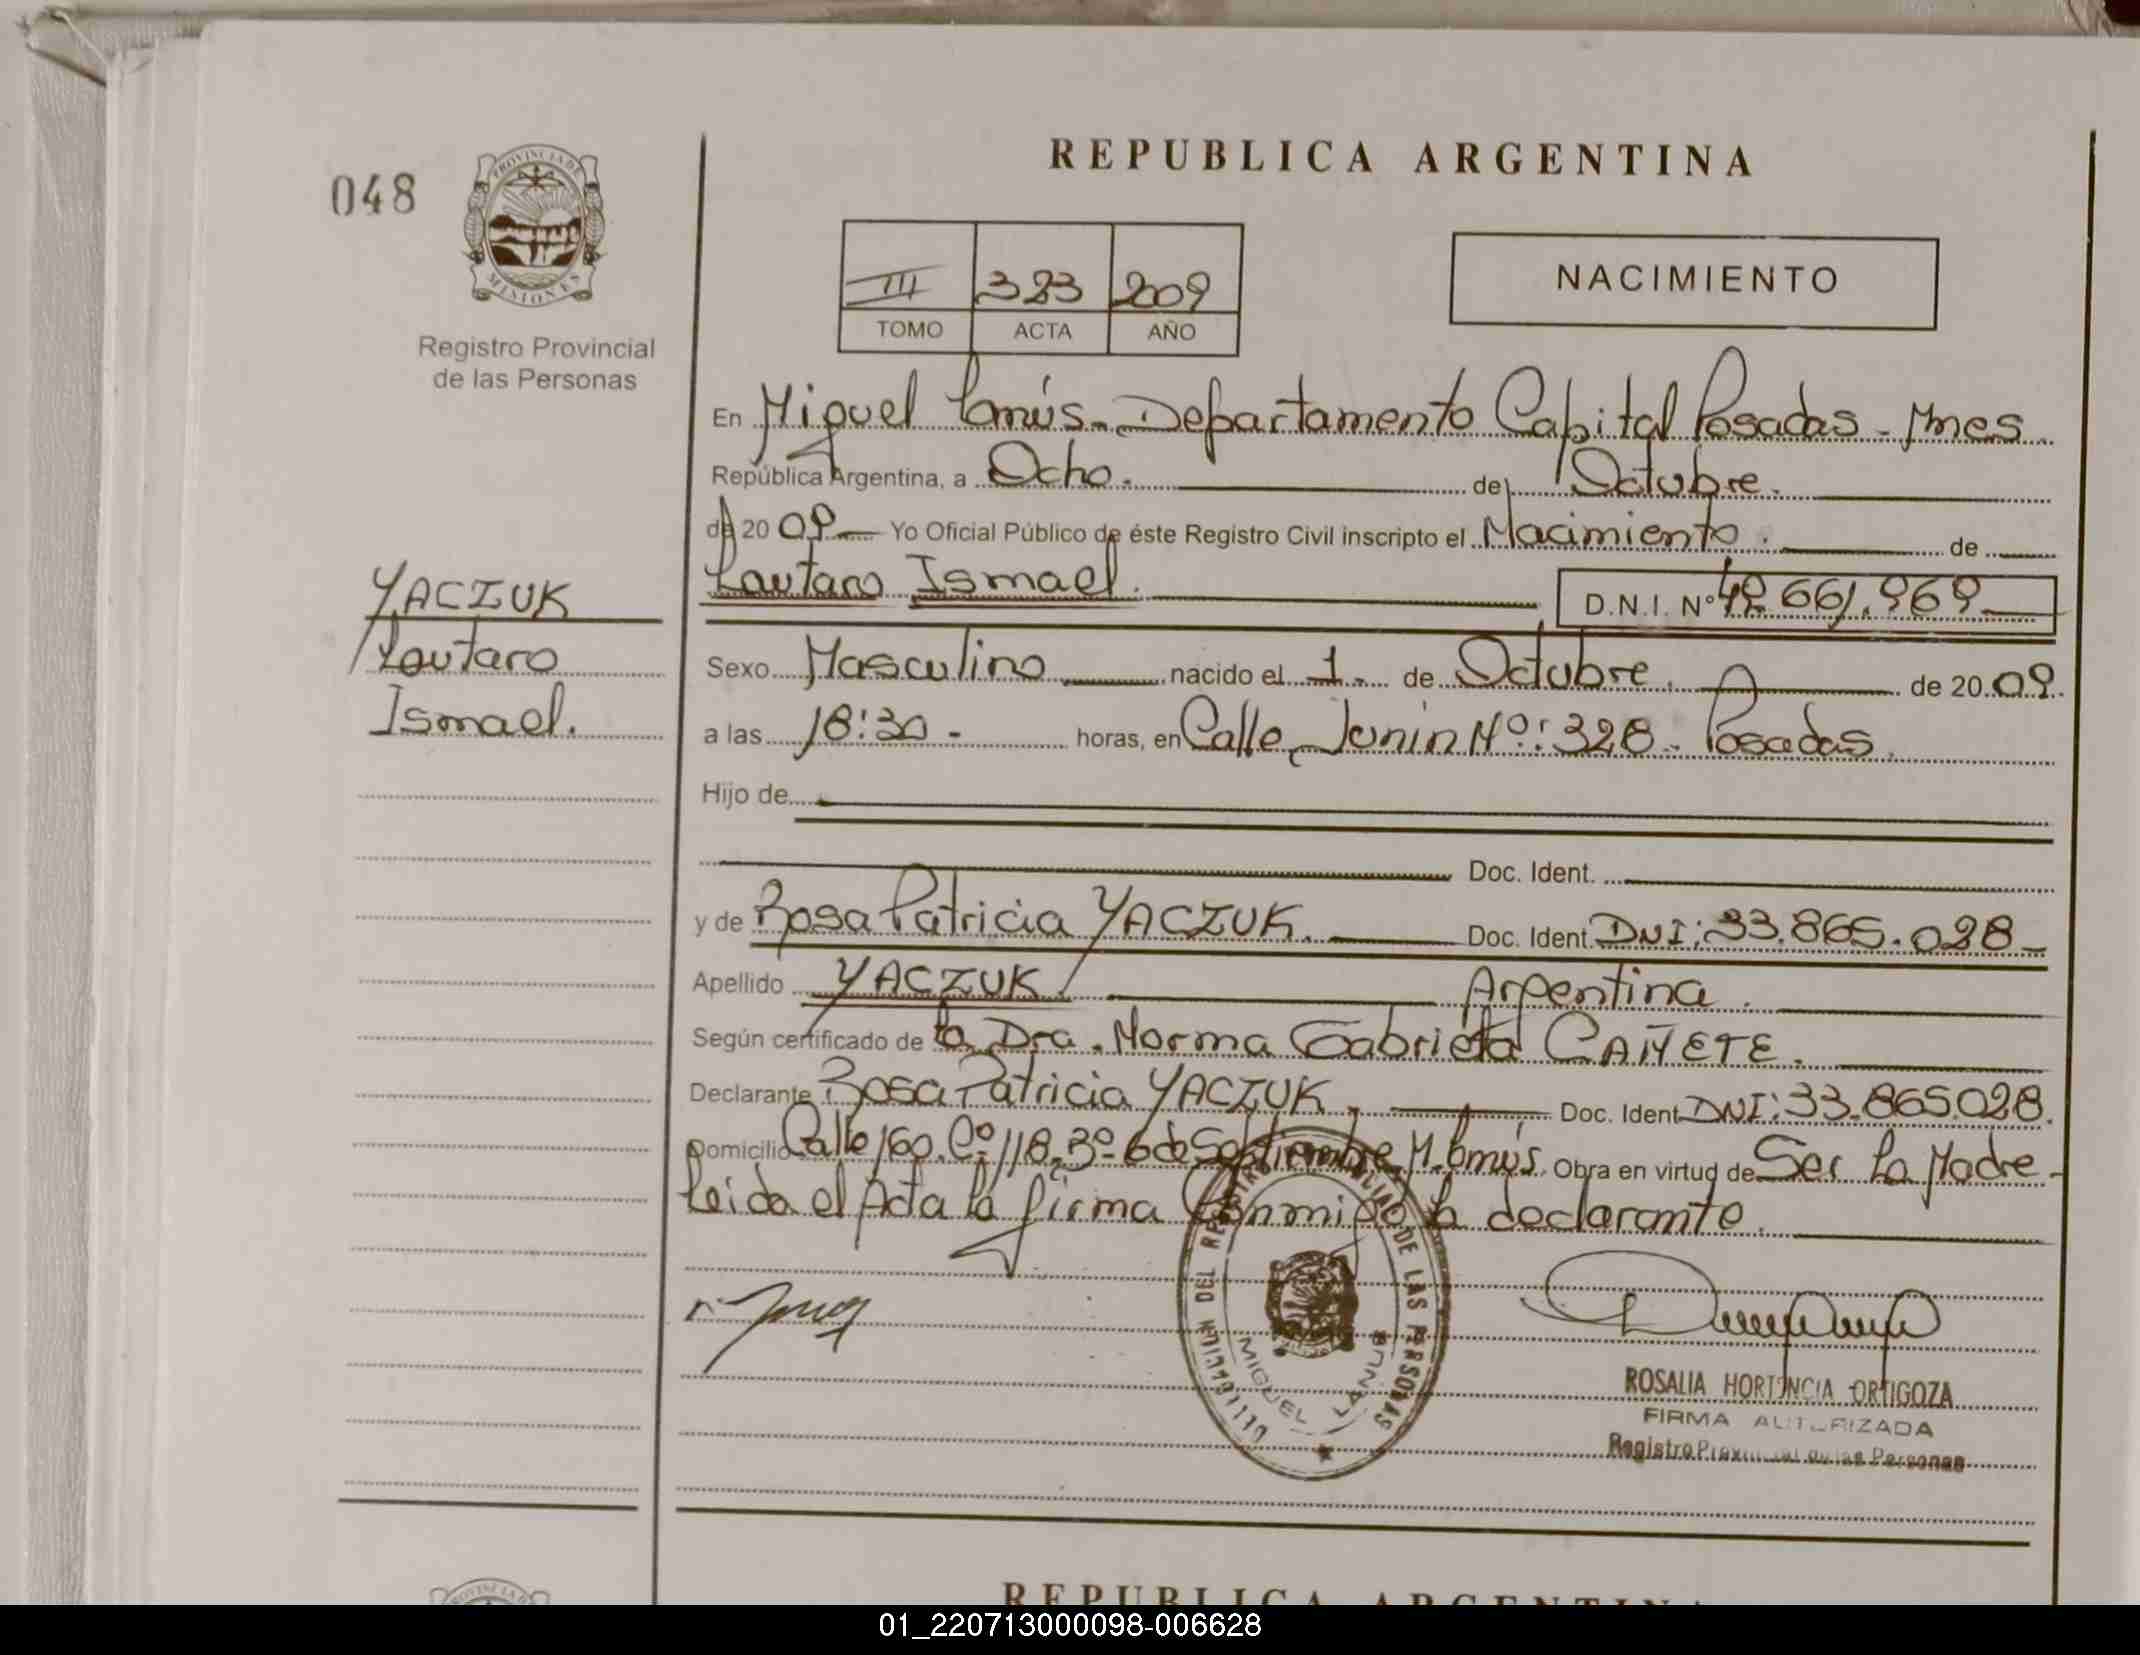 REPUBLICA ARGENTINA
048
PROVINCIA DE
MISIONES
Registro Provincial
de las Personas
III 323 2009
TOMO ACTA AÑO
NACIMIENTO
En Miguel Lanús - Departamento Capital Posadas - Mnes
República Argentina, a Ocho. de Octubre.
de 20 09 Yo Oficial Público de éste Registro Civil inscripto el Nacimiento. de
Lautaro Ismael. D.N.I. Nº 49.661.969
YACZUK
Lautaro
Ismael.
Sexo Masculino nacido el 1. de Octubre. de 20 09.
a las 18:30 - horas, en Calle Junin Nº: 328 - Posadas.
Hijo de
Doc. Ident.
y de Rosa Patricia YACZUK. Doc. Ident. DNI: 33.865.028 -
Apellido YACZUK. Argentina.
Según certificado de la Dra. Norma Gabriela CAÑETE.
Declarante Rosa Patricia YACZUK. Doc. Ident DNI: 33.865028.
Domicilio Calle 160. Cº 118. Bº 6 de Septiembre. M. Lanús. Obra en virtud de Ser La Madre -
Leida el Acta la firma Conmigo la declarante.
DELEGACION DEL REGISTRO PROVINCIAL DE LAS PERSONAS
MIGUEL LANUS
ROSALIA HORTENCIA ORTIGOZA
FIRMA AUTORIZADA
Registro Provincial de las Personas
REPUBLICA ARGENTINA
01_220713000098-006628